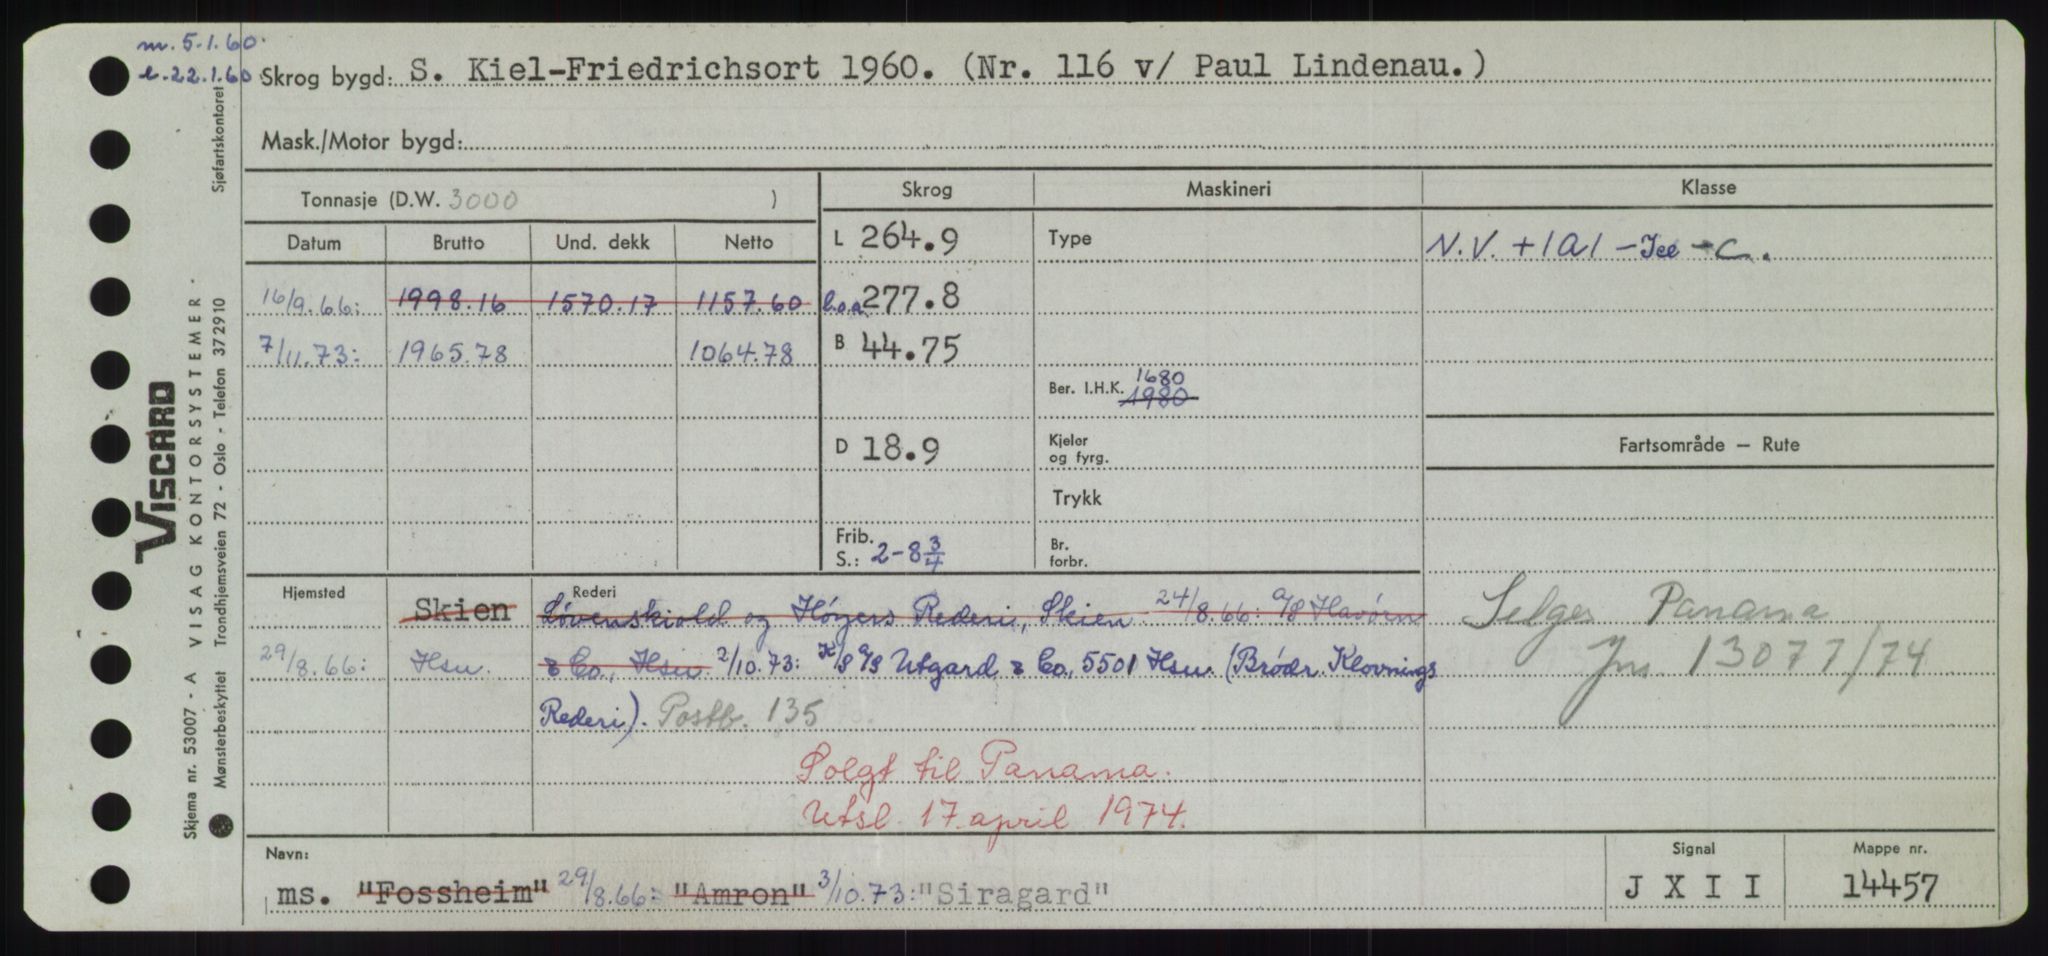 m. 5.1.60.
l. 22.1.60
Skrog bygd: S. Kiel-Friedrichsort 1960. (Nr. 116 v/ Paul Lindenau.)
Mask./Motor bygd:
Tonnasje (D.W. 3000 )
Skrog Maskineri Klasse
Datum Brutto Und. dekk Netto
L 264.9 Type N.V. +1A1 - Ice - C.
16/9.66: 1998.16 1570.17 1157.60 l.o.a. 277.8
7/11.73: 1965.78 1064.78 B 44.75
Ber. I.H.K. 1680
1980
D 18.9 Kjeler og fyrg. Fartsområde — Rute
Trykk
Frib. S.: 2-8 3/4 Br. forbr.
Hjemsted Rederi
Skien Løvenskiold og Høyers Rederi, Skien 24/8.66: A/S Havørn
29/8.66: Hsu. & Co., Hsu. 2/10.73: K/S A/S Utgard & Co., 5501 Hsu. (Brødr. Klovnings
Rederi). Postb. 135
Selges Panama
Jnr. 13077/74
Solgt til Panama.
Utsl. 17 april 1974.
Navn: Signal Mappe nr.
ms. "Fossheim" 29/8.66: "Amron" 3/10.73: "Siragard" J X I I 14457
VISCARD
Skjema nr. 53007 - A VISAG KONTORSYSTEMER -
Mønsterbeskyttet Trondhjemsveien 72 - Oslo - Telefon 372910 Sjøfartskontoret